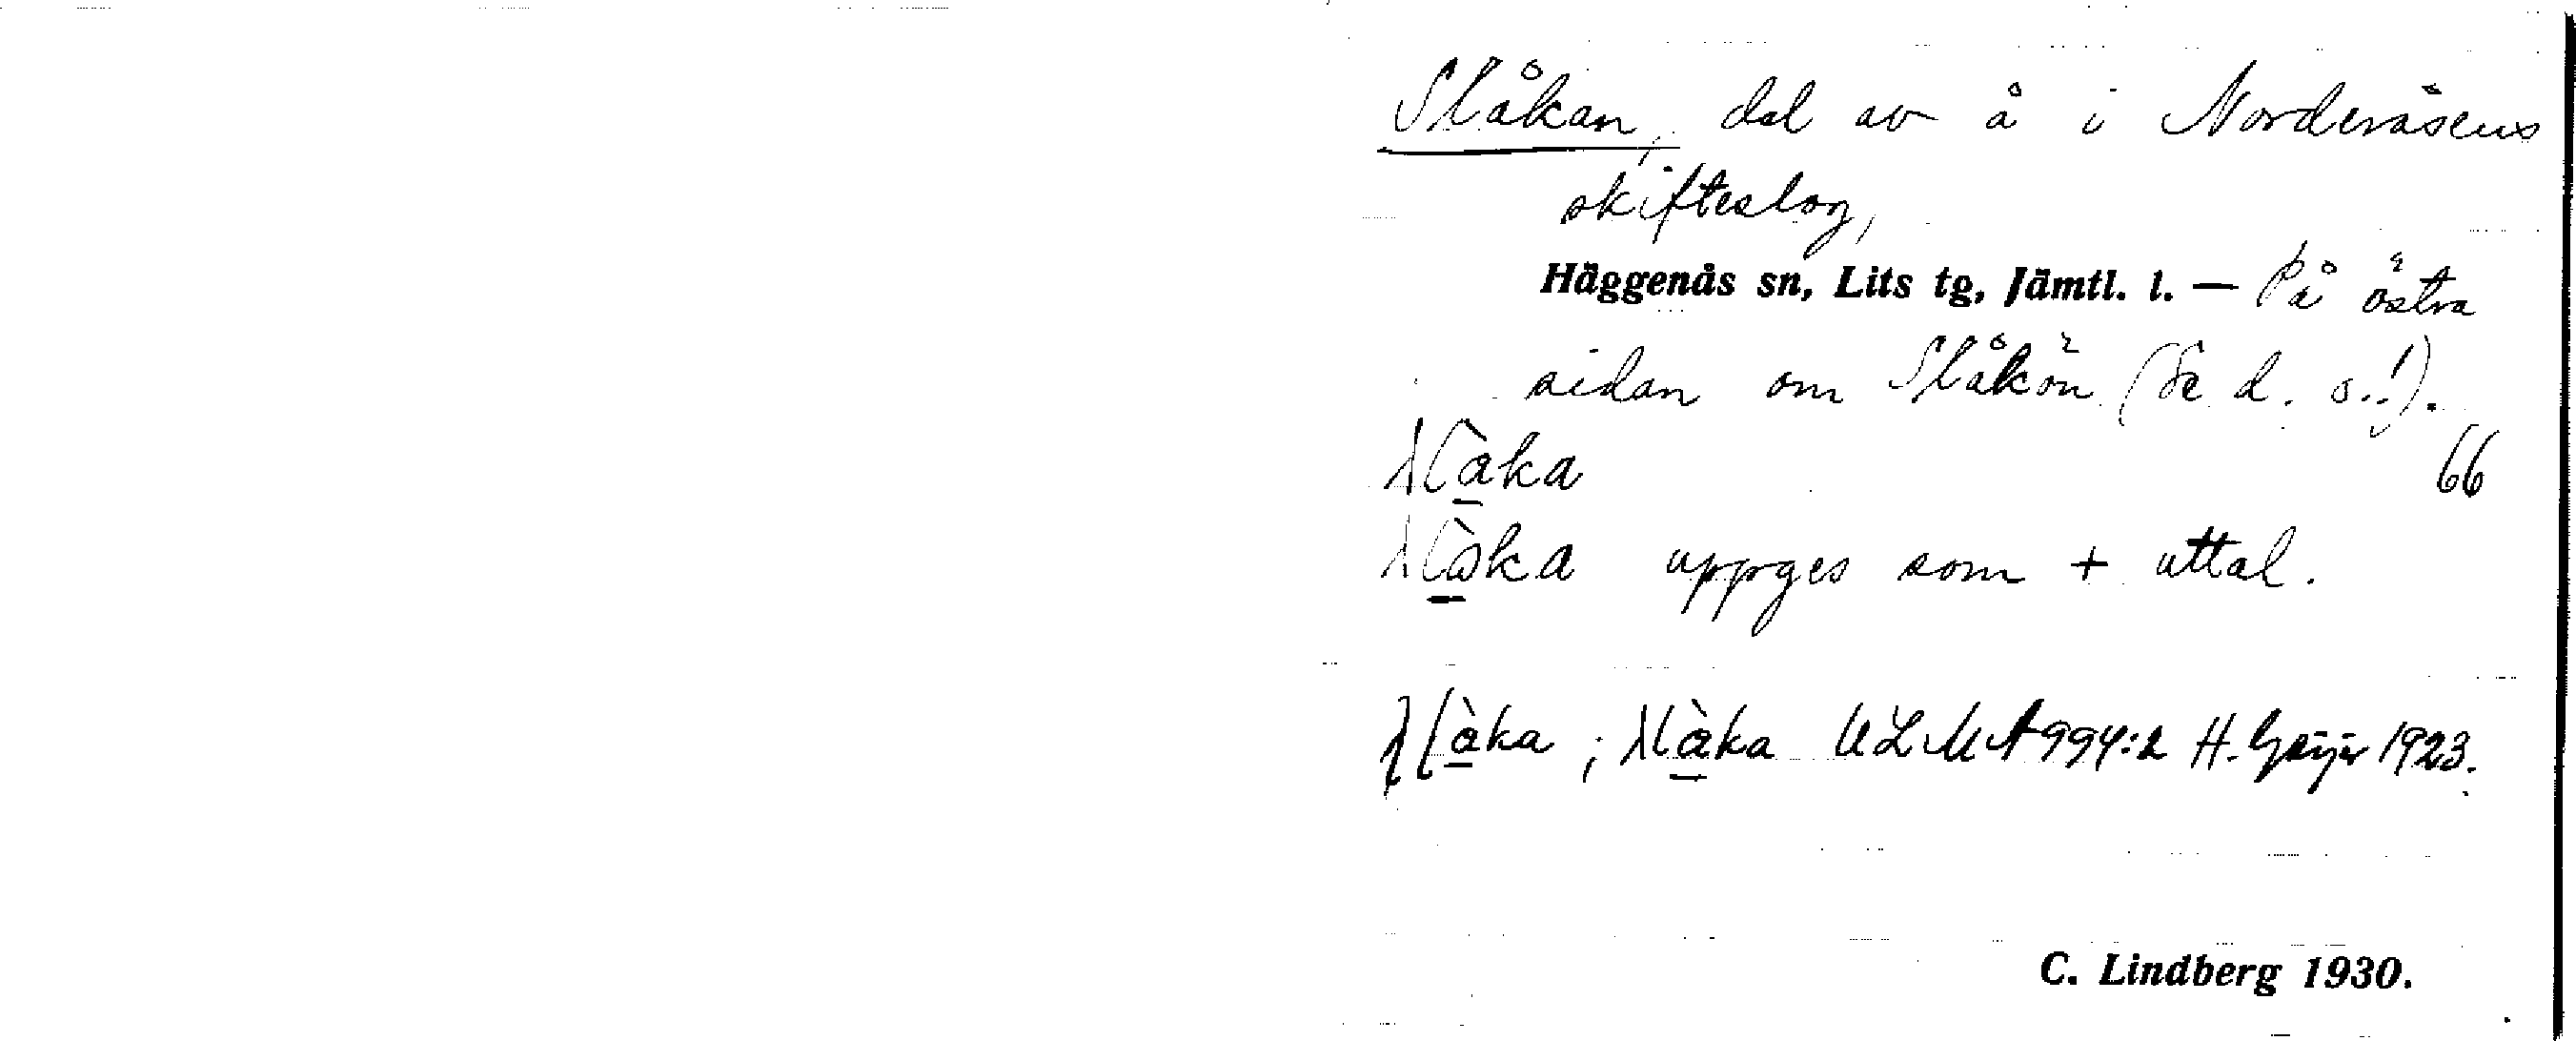 Slåkan, del av å i Norderåsens
skifteslag,
Häggenås sn, Lits tg, Jämtl. l. — På östra
sidan om Slåkön (Se d. o.!).
66
uppges som + uttal.
ULMA 994:2 H. Geijer 1923.
C. Lindberg 1930.